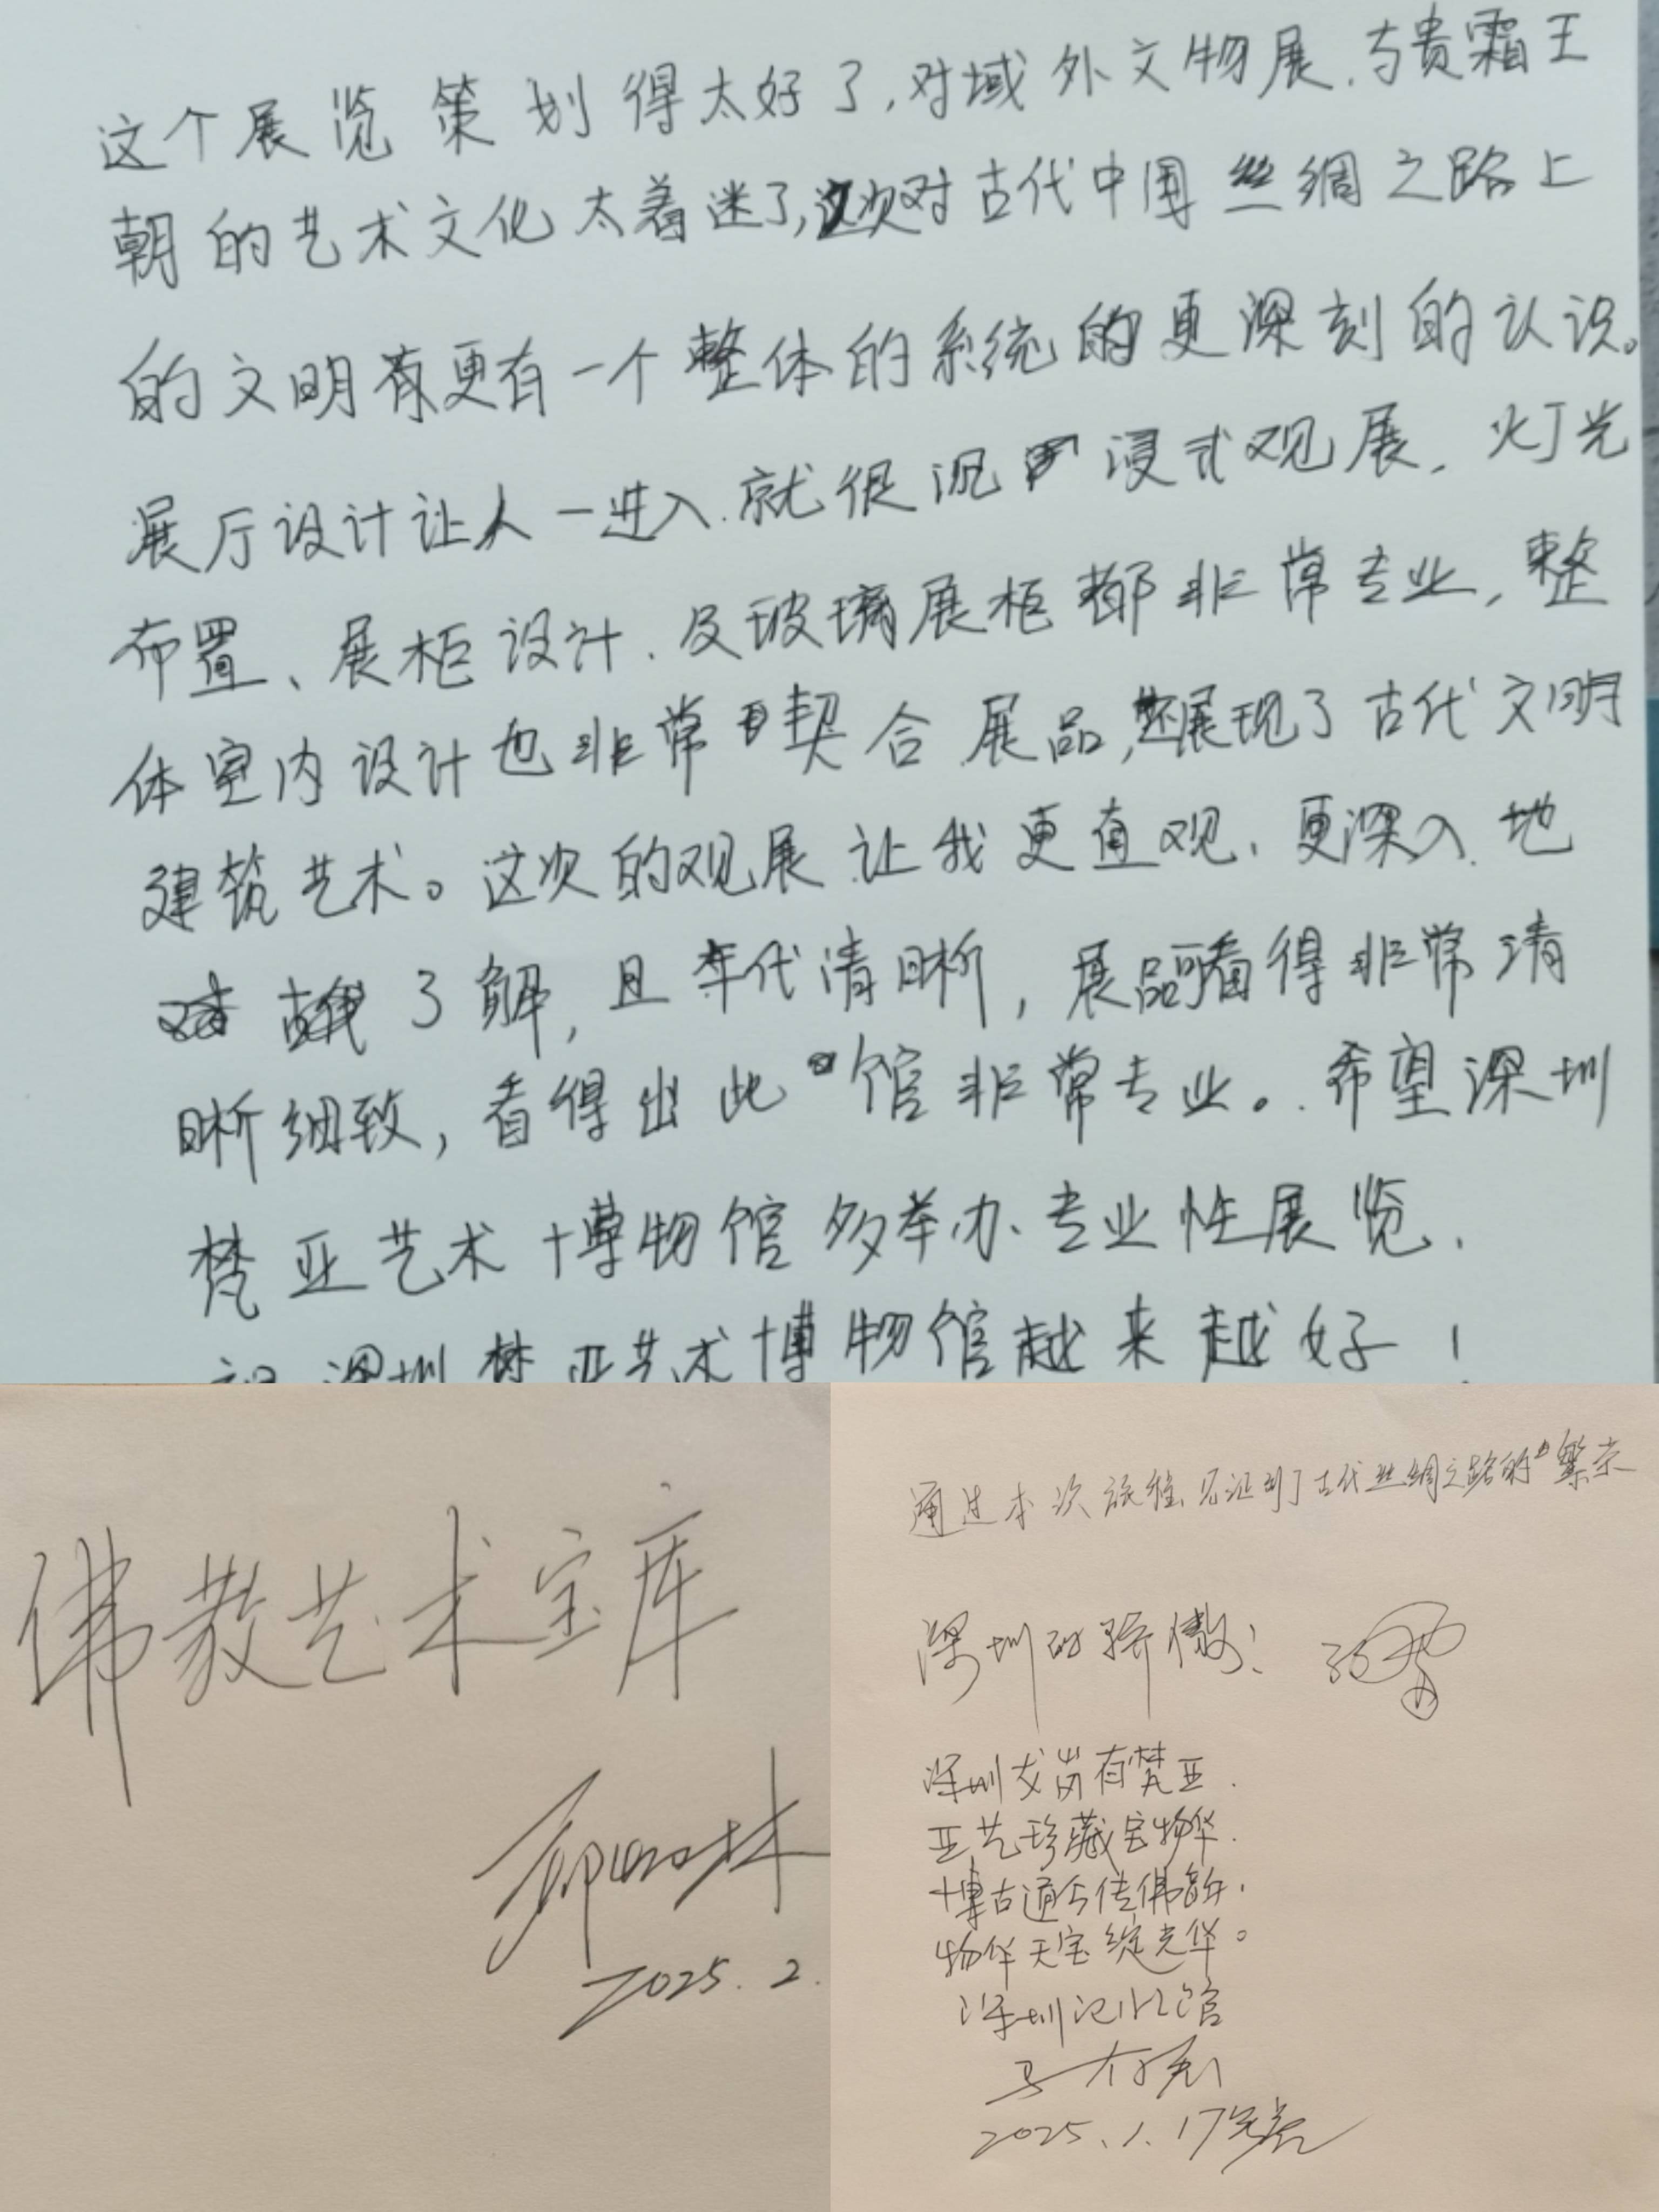 这个展览策划得太好了,对域外文物展.与贵霜王
朝的艺术文化太着迷了,这次对古代中国丝绸之路上
的文明有更有一个整体的系统的更深刻的认识。
展厅设计让人一进入.就很沉浸式观展.灯光
布置、展柜设计.及玻璃展柜都非常专业,整
体室内设计也非常契合展品,还展现了古代文明
建筑艺术。这次的观展让我更直观、更深入地
了解,且年代清晰,展品可看得非常清
晰细致,看得出此馆非常专业。希望深圳
梵亚艺术博物馆多举办、专业性展览.
祝深圳梵亚艺术博物馆越来越好!
佛教艺术宝库
2025.2.
通过本次旅程、见证到了古代丝绸之路的繁荣
深圳的骄傲!
深圳龙岗有梵亚.
亚艺珍藏宝物华.
博古通今传佛韵.
物华天宝绽光华。
深圳记忆馆
2025.1.17